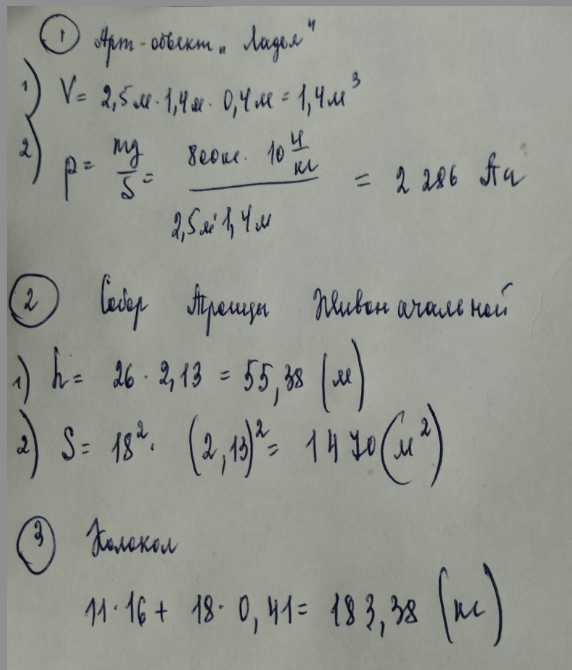 1 Арт-объект "Ладья"
1) V = 2,5м · 1,4м · 0,4м = 1,4м³
2) p = mg/S = 800кг · 10 Н/кг / 2,5м · 1,4м = 2 286 Па
2 Собор Троицы Живоначальной
1) h = 26 · 2,13 = 55,38 (м)
2) S = 18² · (2,13)² = 1470 (м²)
3 Колокол
11 · 16 + 18 · 0,41 = 183,38 (кг)